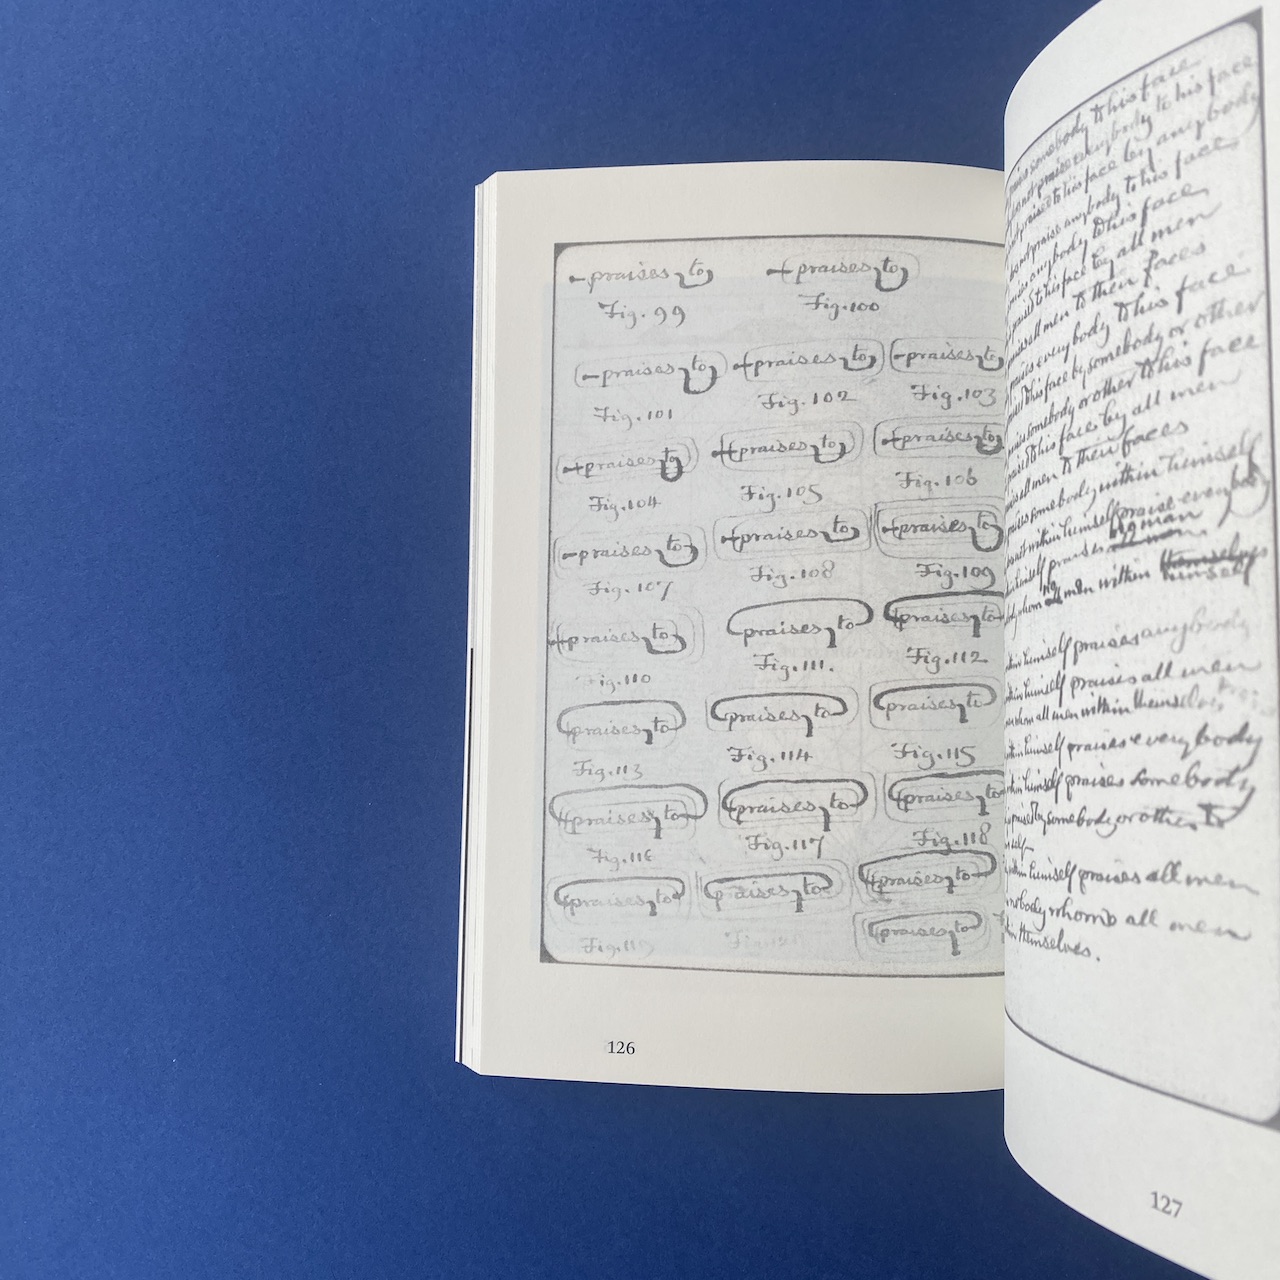 praises to praises to
Fig. 99 Fig. 100
praises to praises to praises to
Fig. 101 Fig. 102 Fig. 103
praises to praises to praises to
Fig. 104 Fig. 105 Fig. 106
praises to praises to praises to
Fig. 107 Fig. 108 Fig. 109
praises to praises to praises to
Fig. 110 Fig. 111. Fig. 112
praises to praises to praises to
Fig. 113 Fig. 114 Fig. 115
praises to praises to praises to
Fig. 116 Fig. 117 Fig. 118
praises to praises to praises to
Fig. 119
praises to
126
somebody to his face
not praise everybody to his face
praised to his face by anybody
not praise anybody to his face
anybody to his face
praised to his face by all men
all men to their faces
praises everybody to his face
his face by somebody or other
somebody or other to his face
praised to his face by all men
all men to their faces
somebody within himself
not within himself praise everybody
himself praises no man
whom all men within himself
himself praises anybody
himself praises all men
whom all men within themselves
himself praises everybody
himself praises somebody
praised by somebody or other to
within himself praises all men
nobody whom all men
themselves.
127